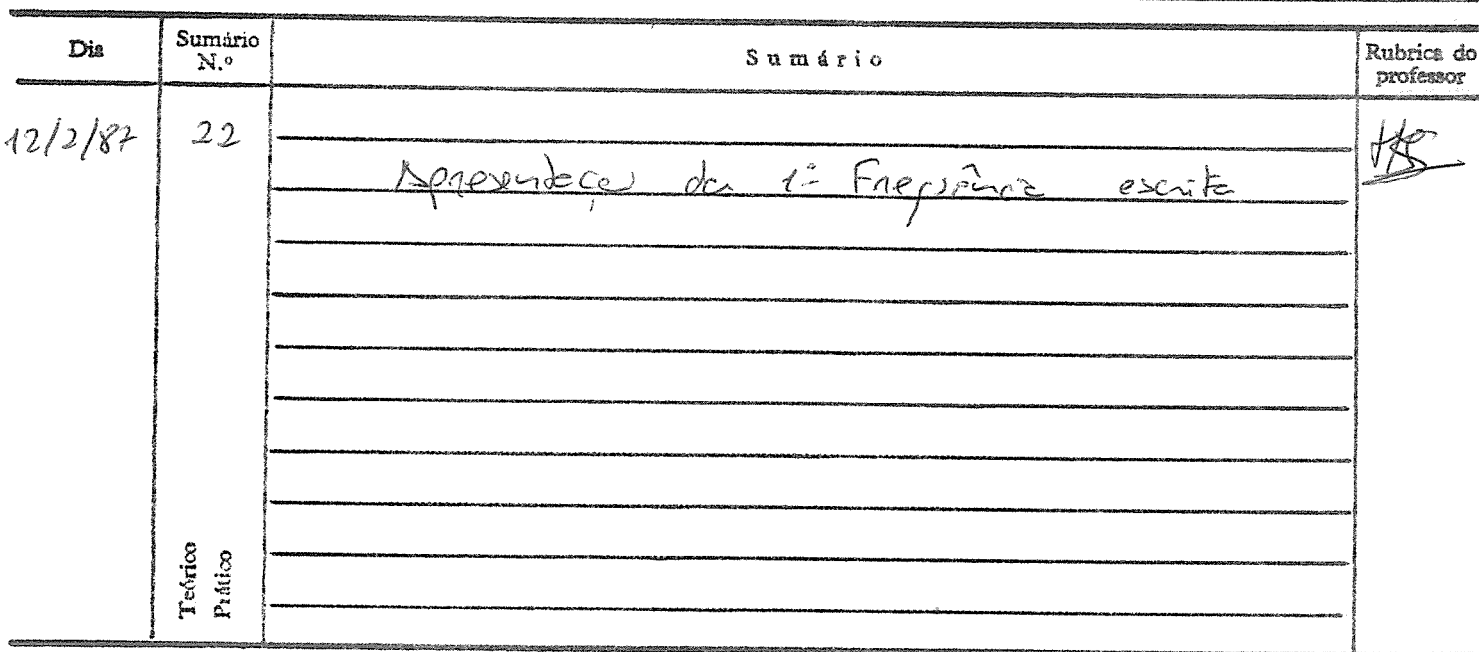 Dia
Sumário
N.º
Sumário
Rubrica do
professor
12/2/87
22
Apresentação da 1ª Frequência escrita
Teórico
Prático